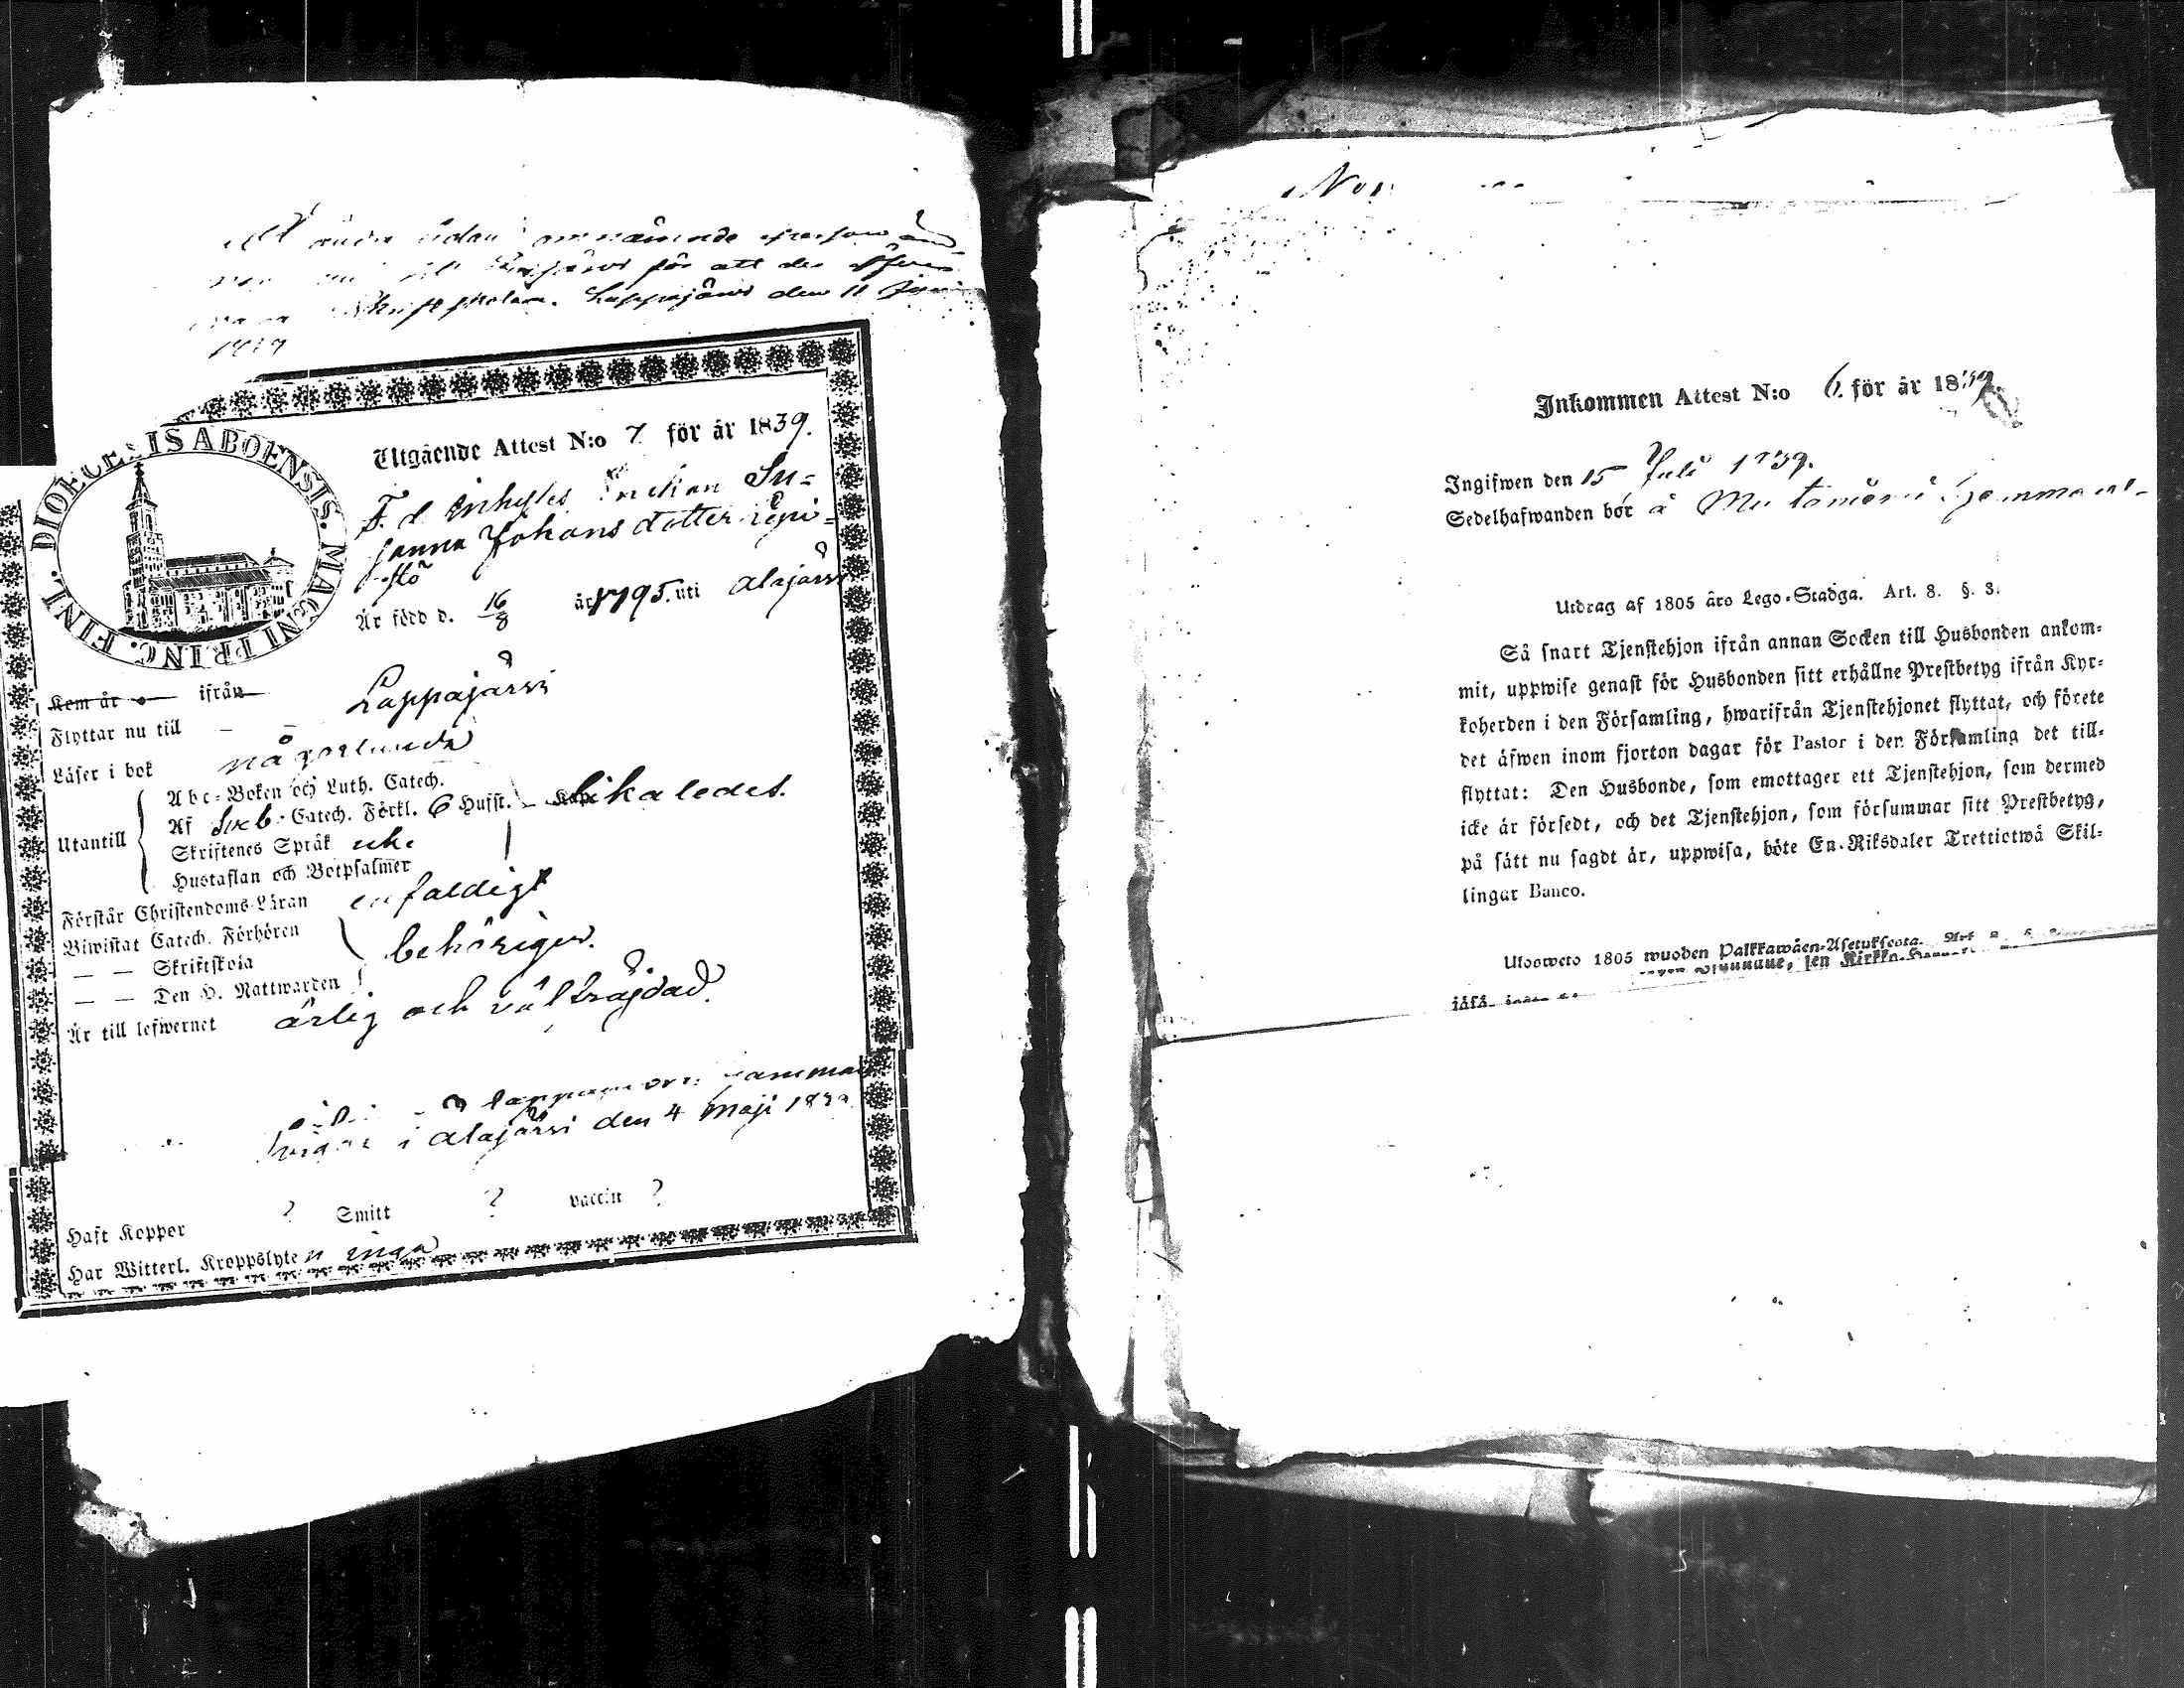 omnämnde person
för att der
Skriftskolan. Lappajärvi den 11 Juni
DIOECESIS ABOENSIS. MAGNI PRINC. FINL.
Utgående Attest N:o 7. för år 1839.
F. d. Inhyses Su=
sanna Johans dotter
Är född d. 16/8 år 1795. uti Alajärvi
Kom år ifrån
Flyttar nu till Lappajärvi
Läser i bok någorlunda
Abc-Boken och Luth. Catech.
Af Sveb. Catech. Förkl. 6 Hufst. likaledes.
Utantill
Skriftenes Språk
Hustaflan och Botpsalmer
Förstår Christendoms-Läran enfaldigt
Biwistat Catech. Förhören
— — Skriftskola behörigen.
— — Den H. Nattwarden
Är till lefwernet ärlig och välfrägdad.
i Alajärvi den 4 Maji 1839
Haft Koppor ? Smitt ? vaccin ?
Har Witterl. Kroppslyten inga
Inkommen Attest N:o 6. för år 1839
Ingifwen den 15 Juli 1839.
Sedelhafwanden bor å
Utdrag af 1805 års Lego-Stadga. Art. 8. §. 3.
Så snart Tjenstehjon ifrån annan Socken till Husbonden ankom=
mit, uppwise genast för Husbonden sitt erhållne Prestbetyg ifrån Kyr=
koherden i den Församling, hwarifrån Tjenstehjonet flyttat, och förete
det äfwen inom fjorton dagar för Pastor i den Församling det till=
flyttat: Den Husbonde, som emottager ett Tjenstehjon, som dermed
icke är försedt, och det Tjenstehjon, som försummar sitt Prestbetyg,
på sätt nu sagdt är, uppwisa, böte En Riksdaler Trettiotwå Skil=
lingar Banco.
Ulosweto 1805 wuoden Palkkawäen-Asetuksesta.